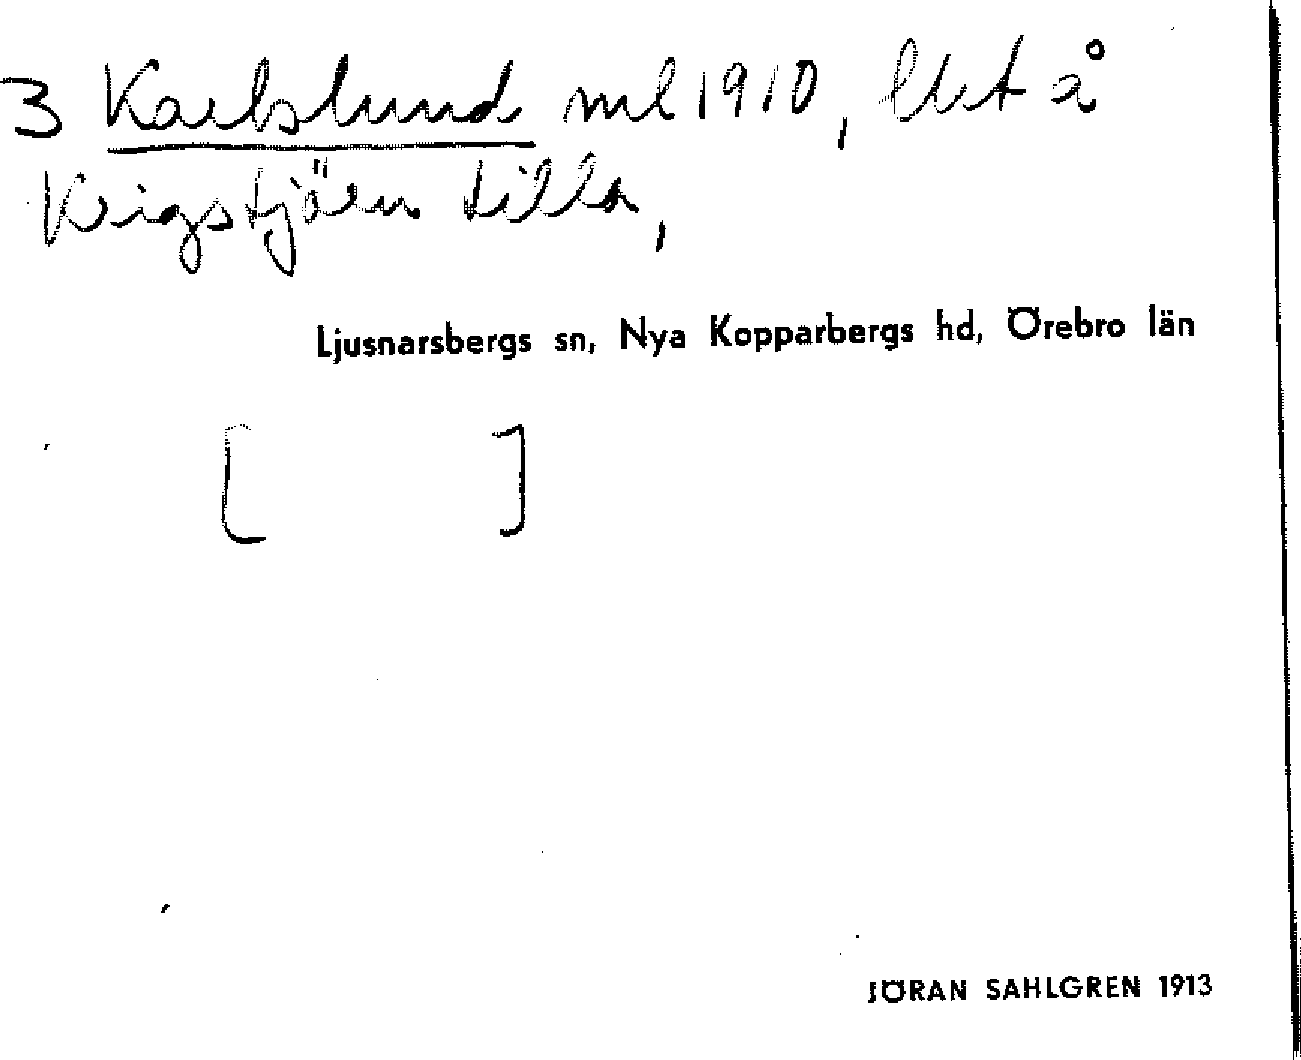 3 Karlslund ml 1910, lht å
Krigstjärn Lilla,
Ljusnarsbergs sn, Nya Kopparbergs hd, Örebro län
[ ]
JÖRAN SAHLGREN 1913